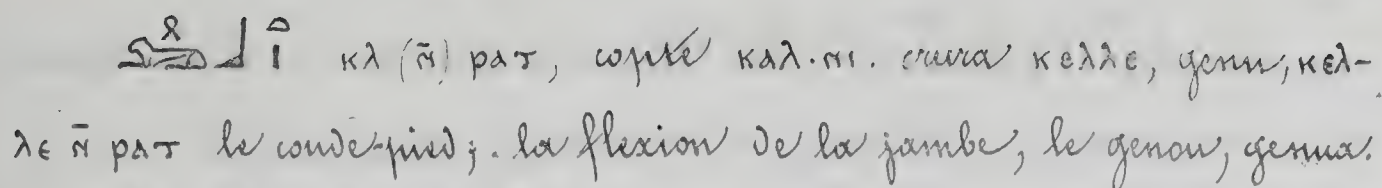 ⲕⲗ (ⲛ̄) ⲣⲁⲧ, copte ⲕⲁⲗ·ⲛⲓ. crura ⲕⲉⲗⲗⲉ, genu; ⲕⲉⲗ-
ⲗⲉ ⲛ̄ ⲣⲁⲧ le coude-pied; . la flexion de la jambe, le genou, genua.